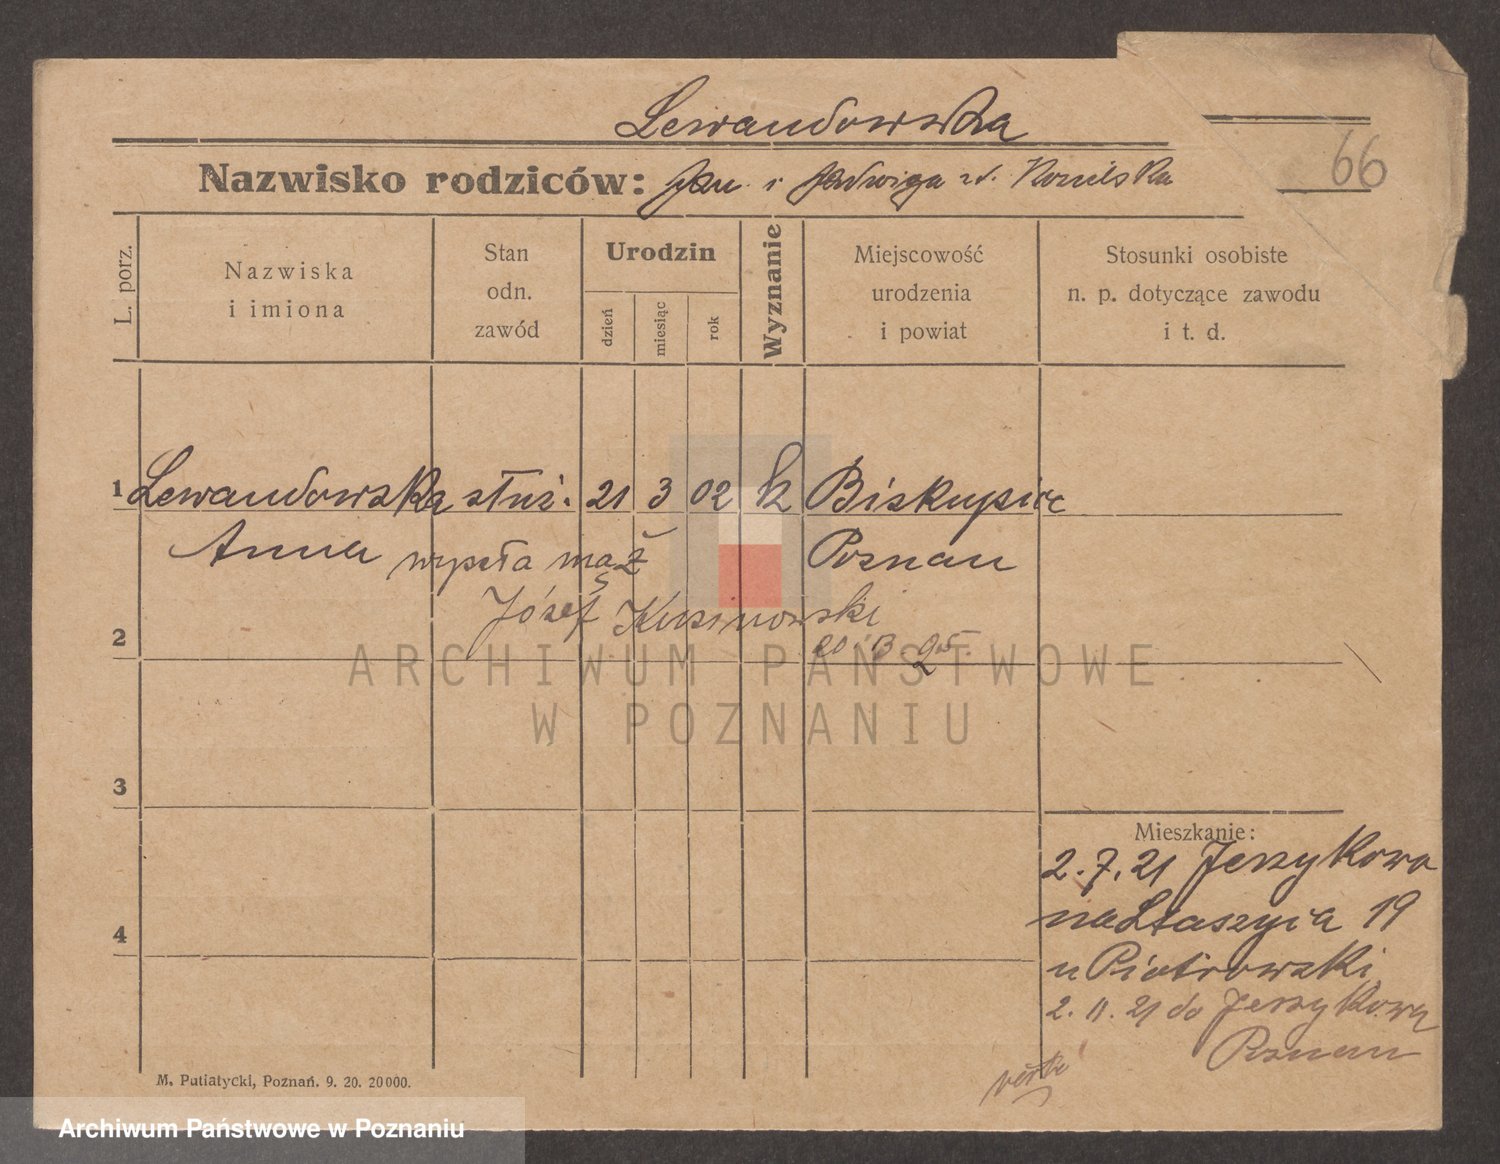 Lewandowska
66
Nazwisko rodziców: Jan i Jadwiga
L. porz.
Nazwiska
i imiona
Stan
odn.
zawód
Urodzin
dzień
miesiąc
rok
Wyznanie
Miejscowość
urodzenia
i powiat
Stosunki osobiste
n. p. dotyczące zawodu
i t. d.
1 Lewandowska służ. 21 3 02 k Biskupice
Anna wyszła mąż Poznan
Józef
2
ARCHIWUM PAŃSTWOWE
W POZNANIU
3
Mieszkanie:
2.7.21 Jerzykowa
19
4
u Piotrowski
2. 11. 21 do Jerzykowa
Poznan
M. Putiatycki, Poznań. 9. 20. 20000.
Archiwum Państwowe w Poznaniu